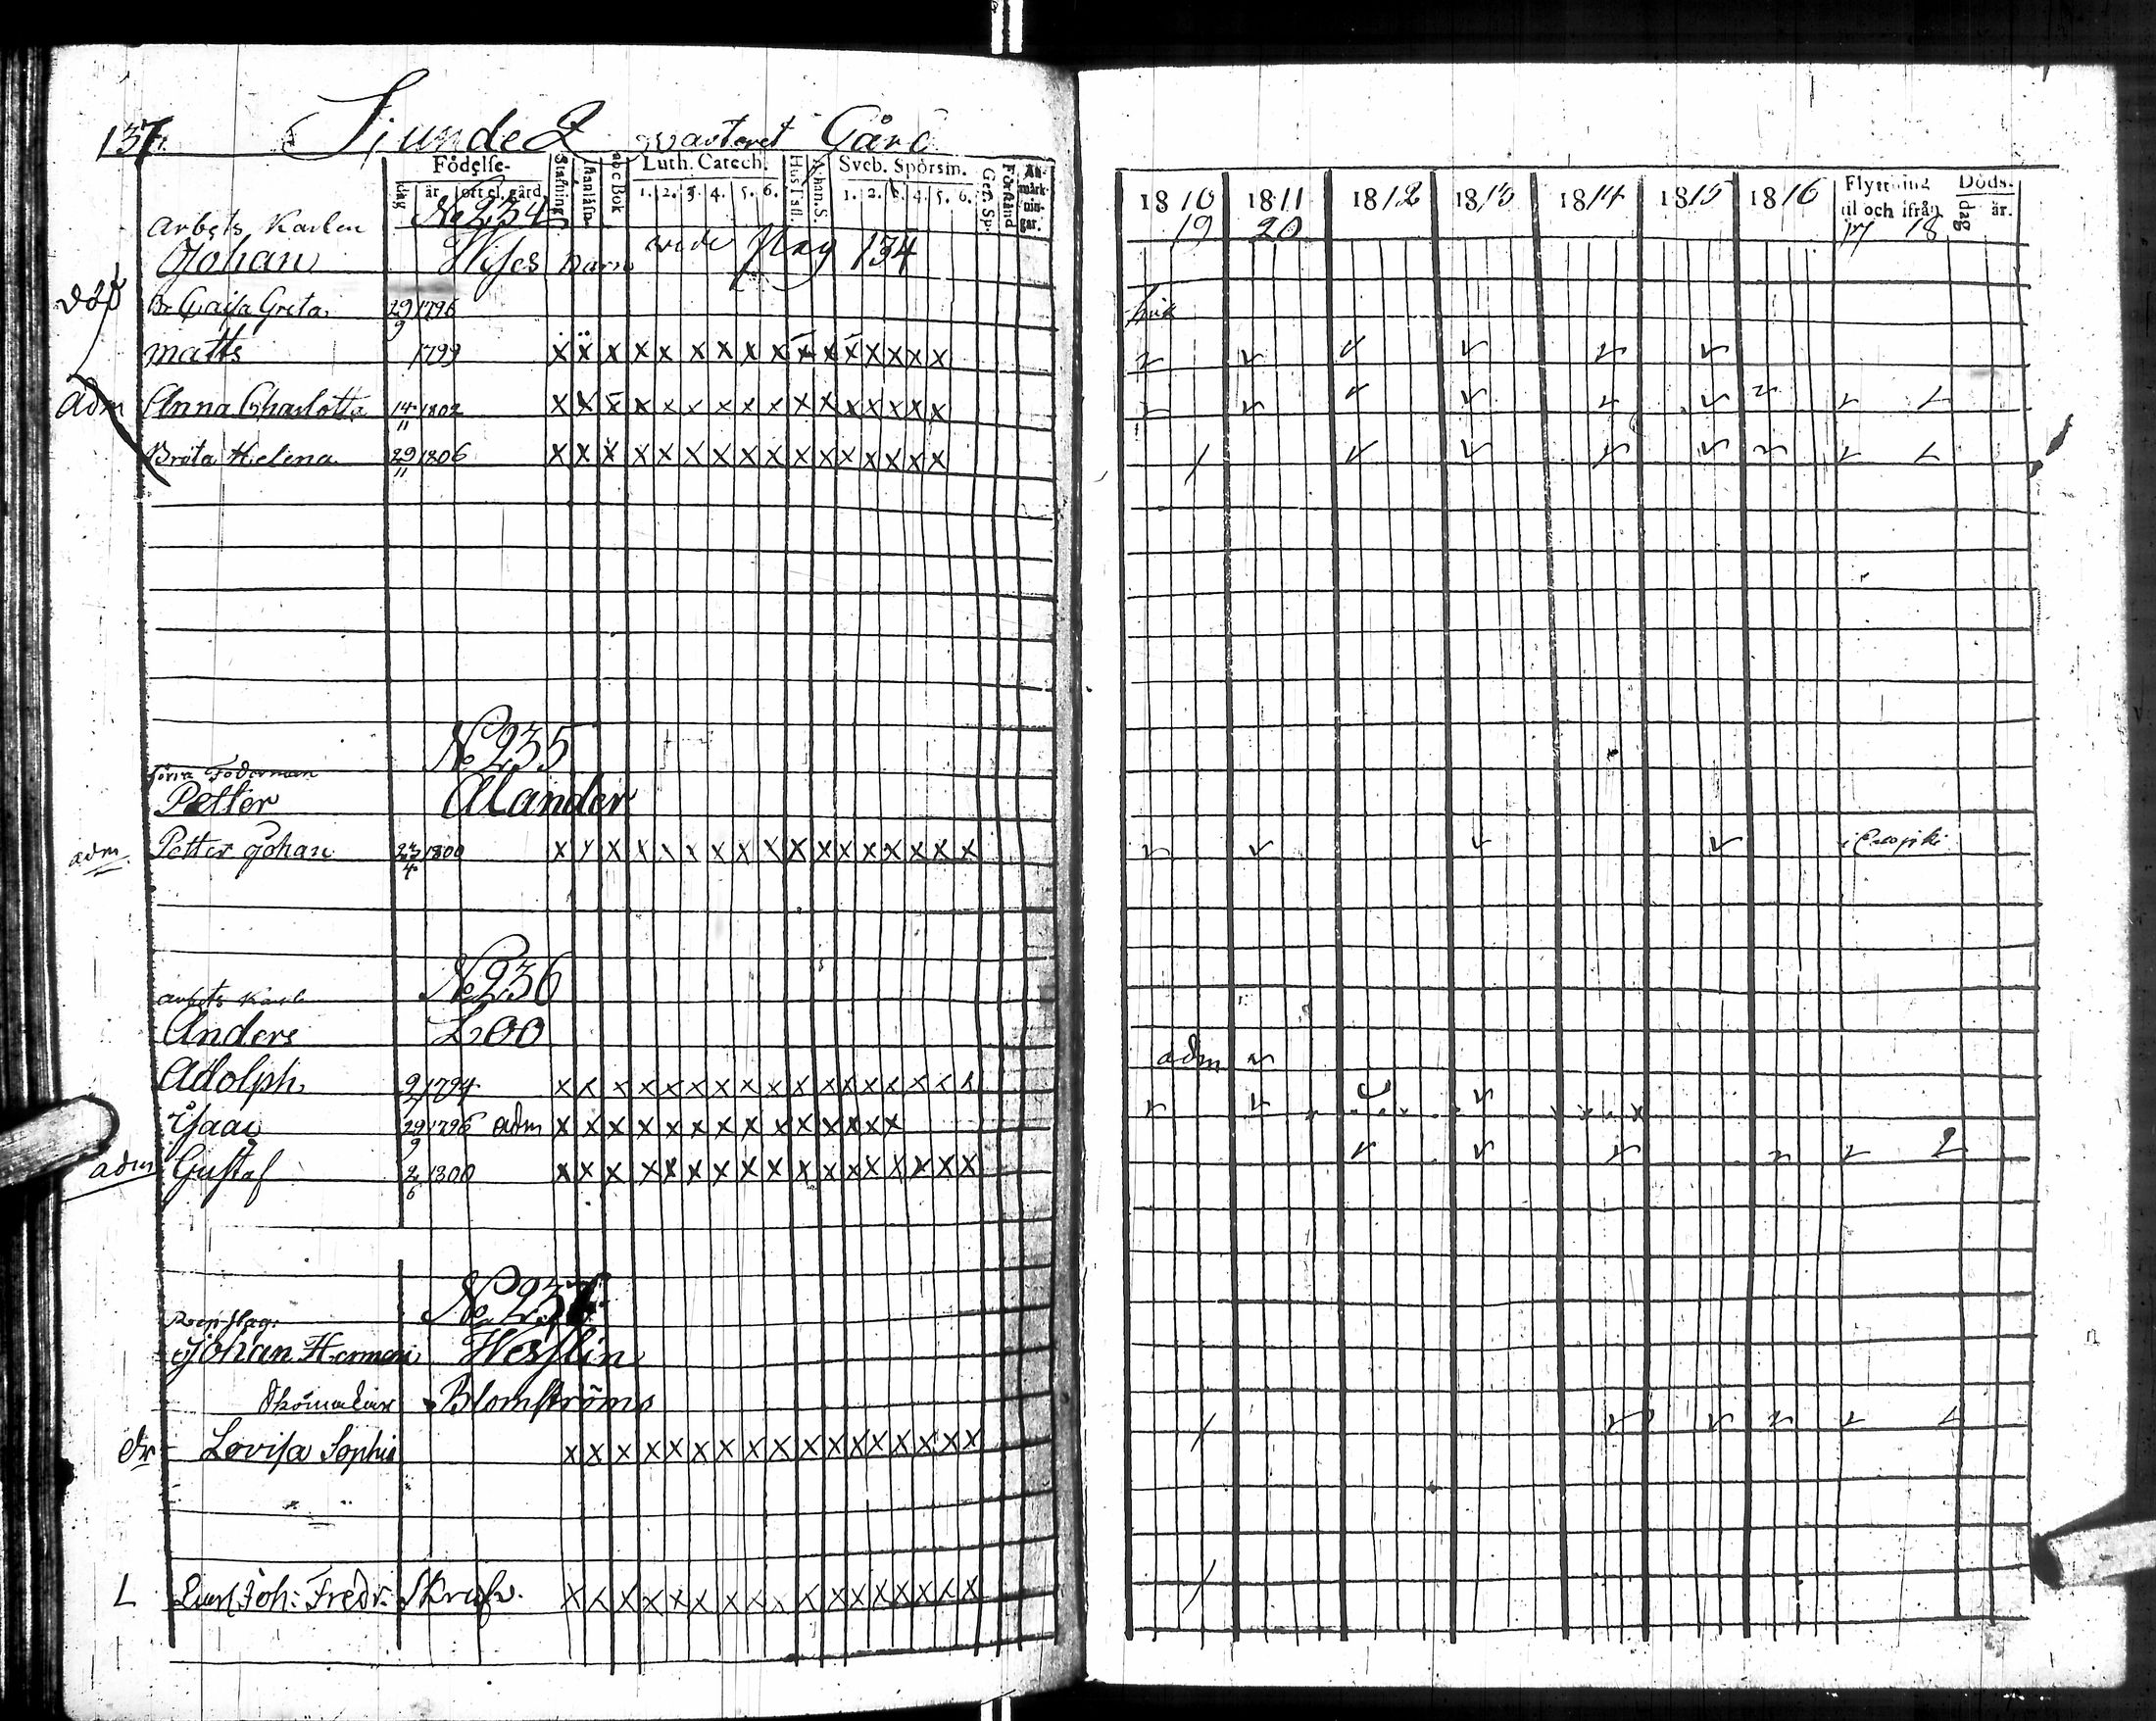 137. Sjunde Qvarteret Gård
Födelse- Stafning Luth. Catech. Hus Tafl. Athan. S. Sveb. Spörsm. Ger. Sp. Förstånd An-märk-nin-gar.
dag år ort el. gård. abc Bok 1. 2. 3. 4. 5. 6. 1. 2. 3. 4. 5. 6.
1810 1811 1812 1813 1814 1815 1816 Flyttning til och ifrån Döds- dag år.
19 20 17 18
No 234
arbets Karlen
Johan Wises barn vide pag 134
död Br. Cajsa Greta 29/9 1796
Matts 1799 x x x x x x x x x x x x x x x x x
adm Anna Charlotta 14/11 1802 x x x x x x x x x x x x x x x x x
Brita Helena 29/11 1806 x x x x x x x x x x x x x x x x x
No 235
förra Foderman
Petter Alander
adm. Petter Johan 23/4 1800 x x x x x x x x x x x x x x x x x x
No 236
arbets Karl
Anders Loo
Adolph 9/ 1794 x x x x x x x x x x x x x x x x x x adm
Isaac 29/9 1796 adm x x x x x x x x x x x x x x x
adm Gustaf 2/6 1800 x x x x x x x x x x x x x x x x x x
No 237.
Repslag:
Johan Herman Wesslin
Blomströms
Lovisa Sophia x x x x x x x x x x x x x x x x x x
L Joh: Fredr: x x x x x x x x x x x x x x x x x x